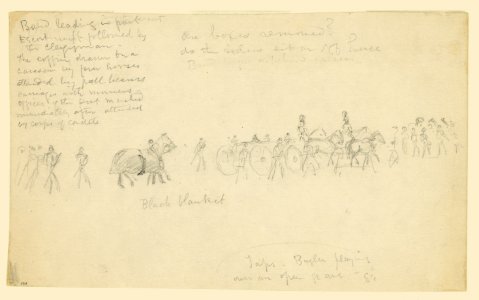 Band leading in front
Escort next followed by
the clergyman -
The coffin drawn on a
caisson by four horses
attended by pall bearers
carriages with mourners
officers of the Post marched
immediately after attended
by corps of cadets
are boxes removed?
do the riders sit on
Black blanket
Taps - Bugler playing
over an open grave -